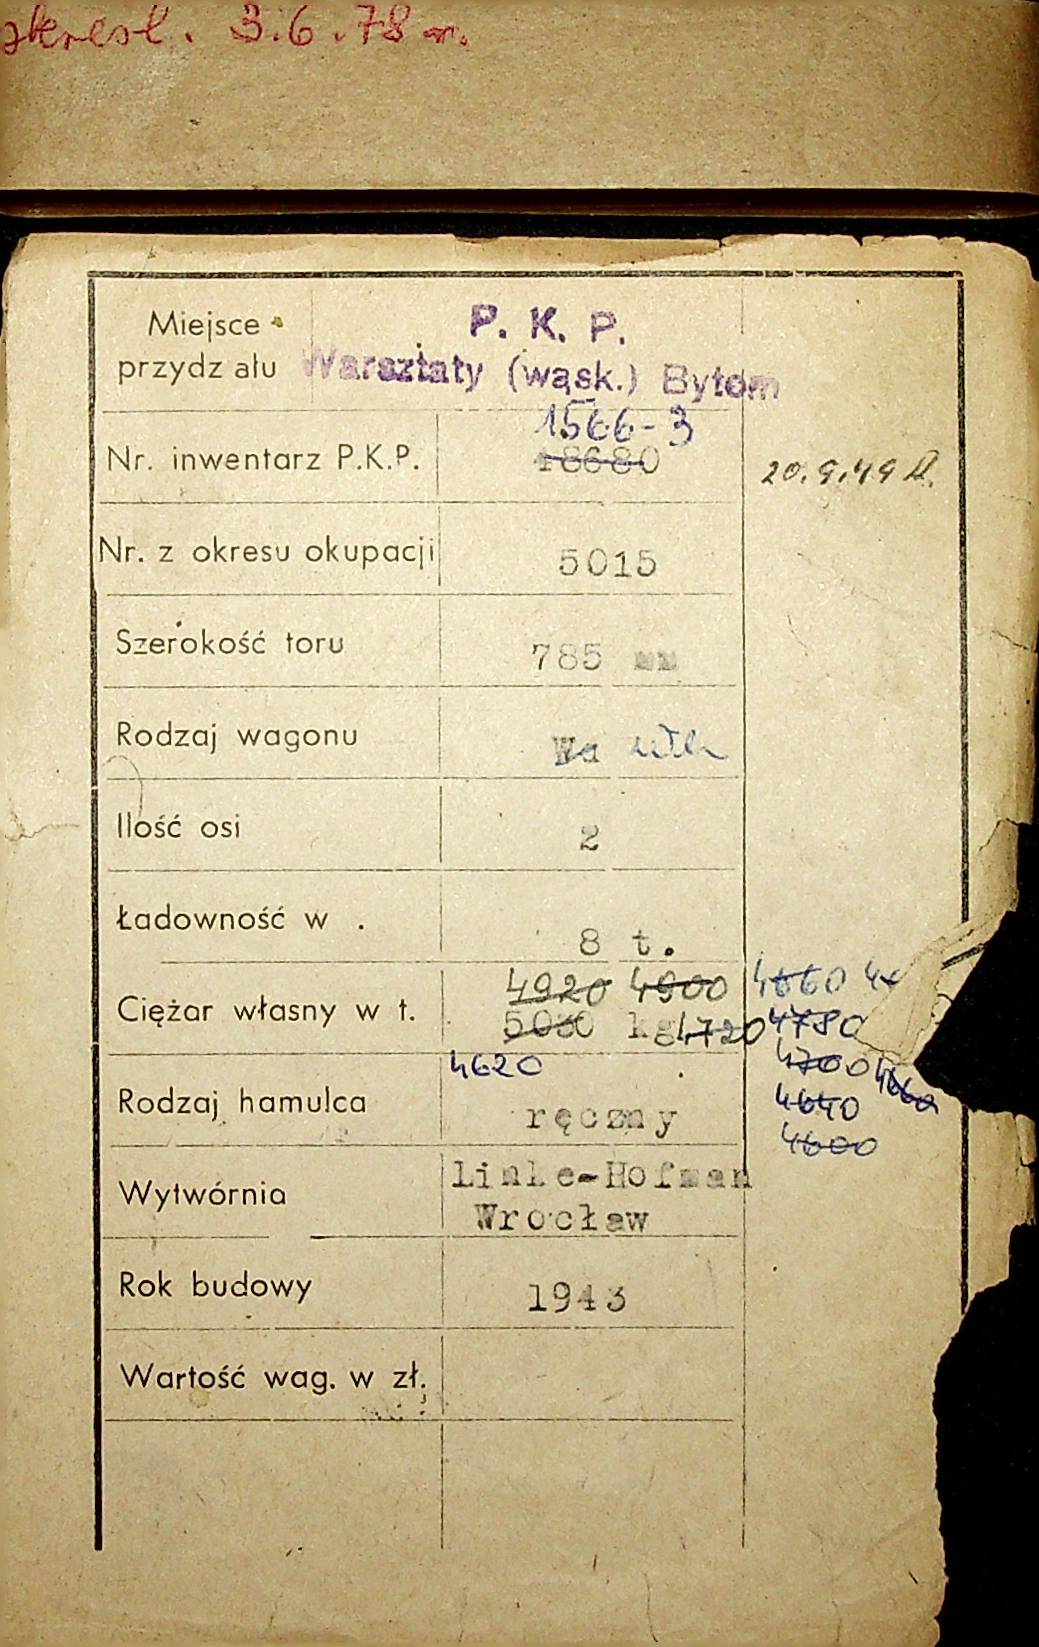 skreśl. 3.6.78 r.
Miejsce P. K. P.
przydz ału Warsztaty (wąsk.) Bytom
1566-3
Nr. inwentarz P.K.P. 18680 20.9.49
Nr. z okresu okupacji 5015
Szerokość toru 785 mm
Rodzaj wagonu Wa
Ilość osi 2
Ładowność w . 8 t.
4920 4900 4660
Ciężar własny w t. 5030 kg 4720 4780
4620 4700 4660
Rodzaj hamulca ręczny 4640
4600
Wytwórnia Linke-Hofman
Wrocław
Rok budowy 1943
Wartość wag. w zł.